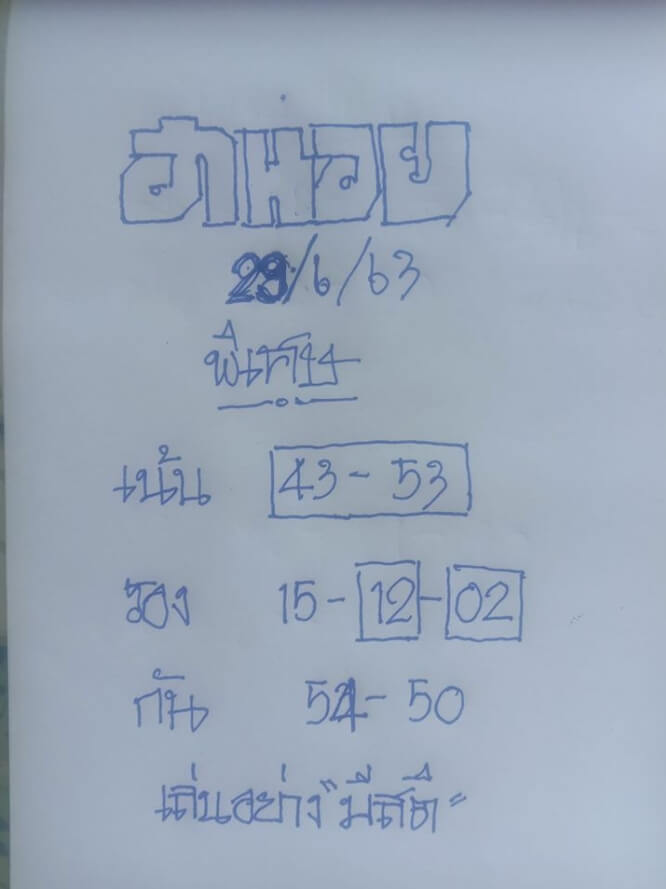 ฮานอย
29/6/63
พิเศษ
เน้น 43-53
รอง 15-12-02
กัน 54-50
เล่นอย่าง"มีสติ"